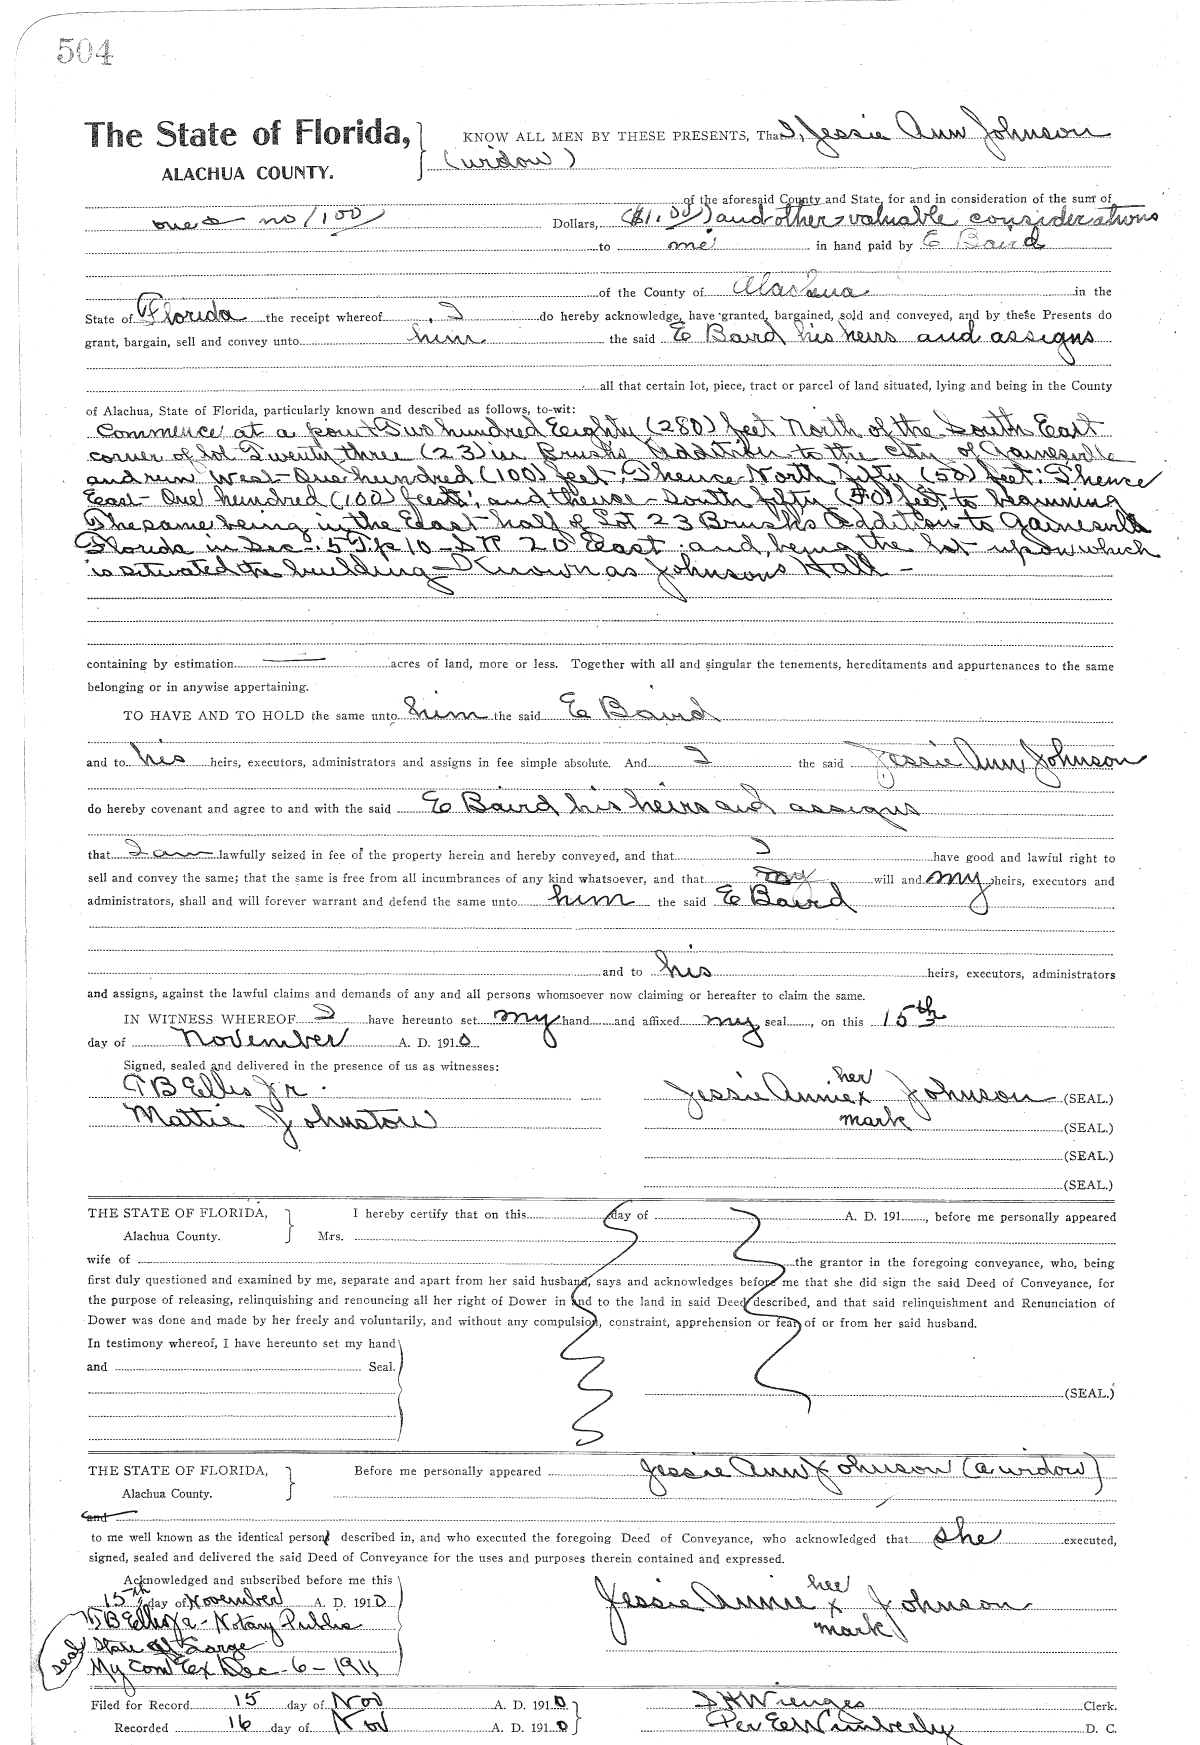 504
The State of Florida, KNOW ALL MEN BY THESE PRESENTS, That I, Jessie Ann Johnson
ALACHUA COUNTY. (widow)
of the aforesaid County and State, for and in consideration of the sum of
one & no/100 Dollars, ($1.00) and other valuable considerations
to me in hand paid by E Baird
of the County of Alachua in the
State of Florida the receipt whereof I do hereby acknowledge, have granted, bargained, sold and conveyed, and by these Presents do
grant, bargain, sell and convey unto him the said E Baird his heirs and assigns
all that certain lot, piece, tract or parcel of land situated, lying and being in the County
of Alachua, State of Florida, particularly known and described as follows, to-wit:
Commence at a point Two hundred Eighty (280) feet North of the South East
corner of lot Twenty three (23) in Brush's Addition to the City of Gainesville
and run West One hundred (100) feet; Thence North fifty (50) feet; Thence
East One hundred (100) feet; and thence South fifty (50) feet to beginning
The same being in the East half of Lot 23 Brush's Addition to Gainesville
Florida in Sec. 5 Tp 10 S R 20 East and being the lot upon which
is situated the building Known as Johnsons Hall
containing by estimation acres of land, more or less. Together with all and singular the tenements, hereditaments and appurtenances to the same
belonging or in anywise appertaining.
TO HAVE AND TO HOLD the same unto him the said E Baird
and to his heirs, executors, administrators and assigns in fee simple absolute. And I the said Jessie Ann Johnson
do hereby covenant and agree to and with the said E Baird his heirs and assigns
that I am lawfully seized in fee of the property herein and hereby conveyed, and that I have good and lawful right to
sell and convey the same; that the same is free from all incumbrances of any kind whatsoever, and that my will and my heirs, executors and
administrators, shall and will forever warrant and defend the same unto him the said E Baird
and to his heirs, executors, administrators
and assigns, against the lawful claims and demands of any and all persons whomsoever now claiming or hereafter to claim the same.
IN WITNESS WHEREOF I have hereunto set my hand and affixed my seal, on this 15th
day of November A. D. 1910
Signed, sealed and delivered in the presence of us as witnesses:
T B Ellis Jr. Jessie Annie her x mark Johnson (SEAL.)
Mattie Johnston (SEAL.)
(SEAL.)
(SEAL.)
THE STATE OF FLORIDA, I hereby certify that on this day of A. D. 191 , before me personally appeared
Alachua County. Mrs.
wife of the grantor in the foregoing conveyance, who, being
first duly questioned and examined by me, separate and apart from her said husband, says and acknowledges before me that she did sign the said Deed of Conveyance, for
the purpose of releasing, relinquishing and renouncing all her right of Dower in and to the land in said Deed described, and that said relinquishment and Renunciation of
Dower was done and made by her freely and voluntarily, and without any compulsion, constraint, apprehension or fear of or from her said husband.
In testimony whereof, I have hereunto set my hand
and Seal.
(SEAL.)
THE STATE OF FLORIDA, Before me personally appeared Jessie Ann Johnson (a widow)
Alachua County.
and
to me well known as the identical person described in, and who executed the foregoing Deed of Conveyance, who acknowledged that she executed,
signed, sealed and delivered the said Deed of Conveyance for the uses and purposes therein contained and expressed.
Acknowledged and subscribed before me this
15th day of November A. D. 1910 Jessie Annie her x mark Johnson
T B Ellis Jr - Notary Public
State at Large
seal My Com Ex Dec - 6 - 1911
Filed for Record 15 day of Nov A. D. 1910 S H Wienges Clerk.
Recorded 16 day of Nov A. D. 1910 Per E Wimberly D. C.